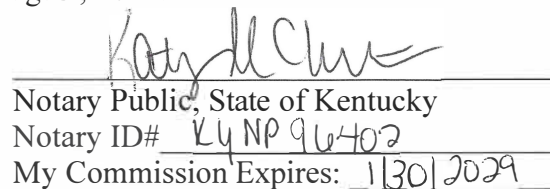 Notary Public, State of Kentucky
Notary ID# KYNP96402
My Commission Expires: 1/30/2029